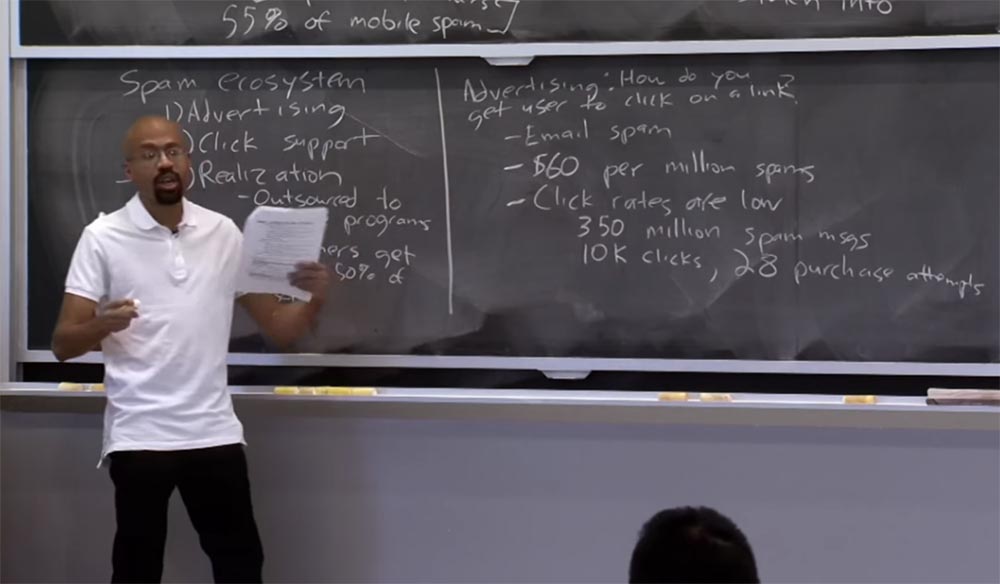 55% of mobile spam
into
Spam ecosystem
1) Advertising
) Click support
) Realization
- Outsourced to
programs
get
50% of
Advertising: How do you
get user to click on a link?
- Email spam
- $60 per million spams
- Click rates are low
350 million spam msgs
10K clicks, 28 purchase attempts